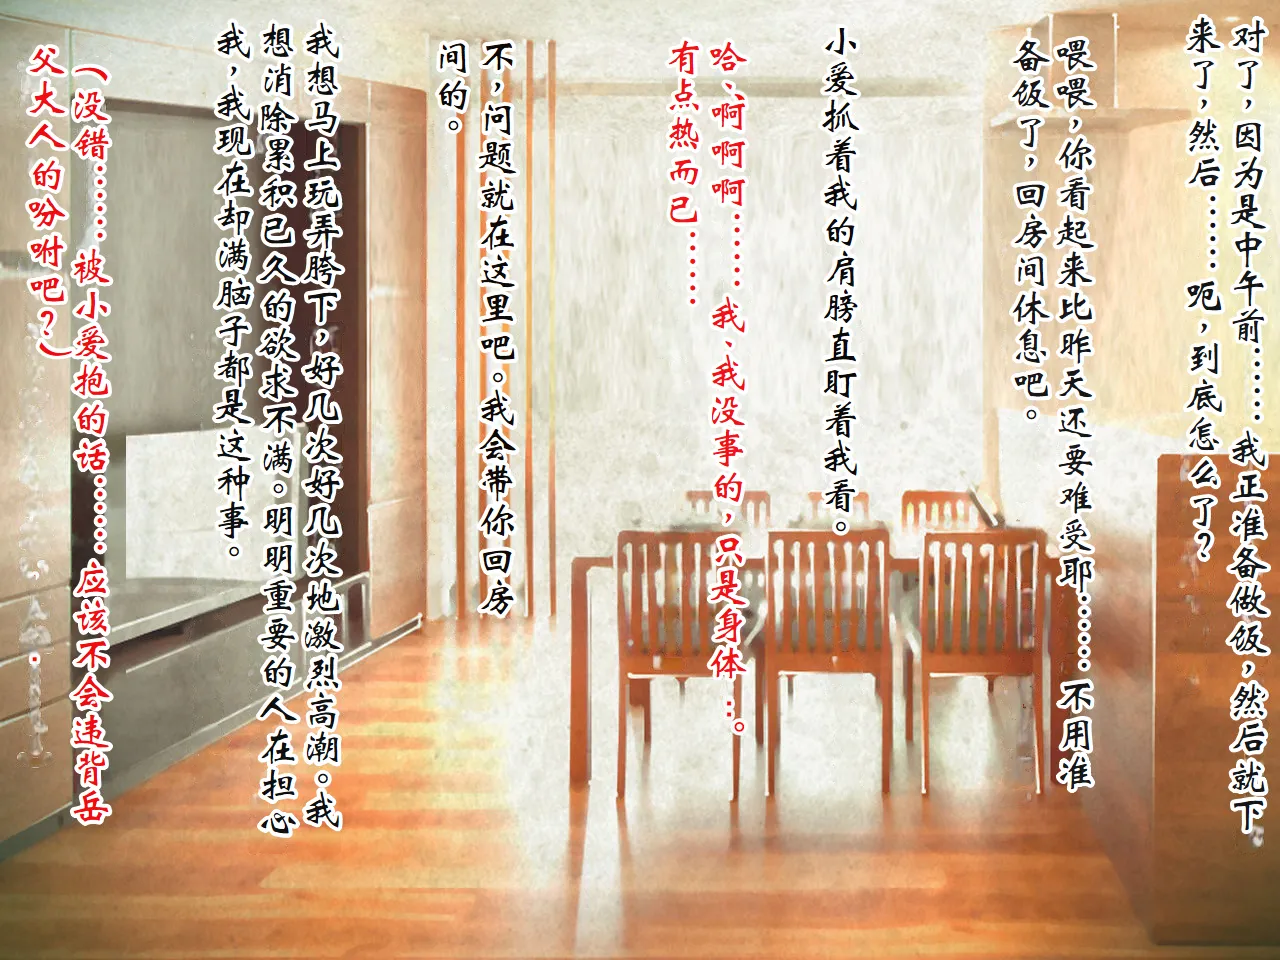 对了，因为是中午前……我正准备做饭，然后就下
来了，然后……呃，到底怎么了？
喂喂，你看起来比昨天还要难受耶……不用准
备饭了，回房间休息吧。
小爱抓着我的肩膀直盯着我看。
哈、啊啊啊……我、我没事的，只是身体…。
有点热而已……
不，问题就在这里吧。我会带你回房
间的。
我想马上玩弄胯下，好几次好几次地激烈高潮。我
想消除累积已久的欲求不满。明明重要的人在担心
我，我现在却满脑子都是这种事。
（没错……被小爱抱的话……应该不会违背岳
父大人的吩咐吧？）